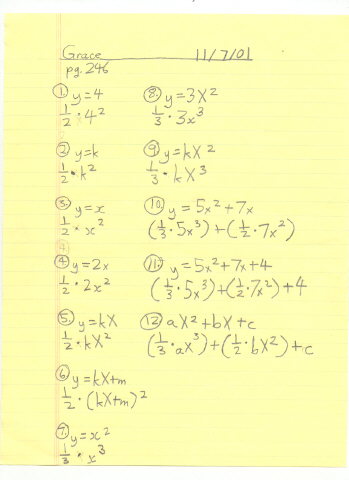 Grace 11/7/01
pg. 246
1. y=4
1/2 · 4²
2. y=k
1/2 · k²
3. y=x
1/2 · x²
4. y=2x
1/2 · 2x²
5. y=kX
1/2 · kX²
6. y=kX+m
1/2 · (kX+m)²
7. y=x²
1/3 · x³
8. y=3X²
1/3 · 3x³
9. y=kX²
1/3 · kX³
10. y=5x²+7x
(1/3 · 5x³)+(1/2 · 7x²)
11. y=5x²+7x+4
(1/3 · 5x³)+(1/2 · 7x²)+4
12. aX²+bX+c
(1/3 · aX³)+(1/2 · bX²)+c